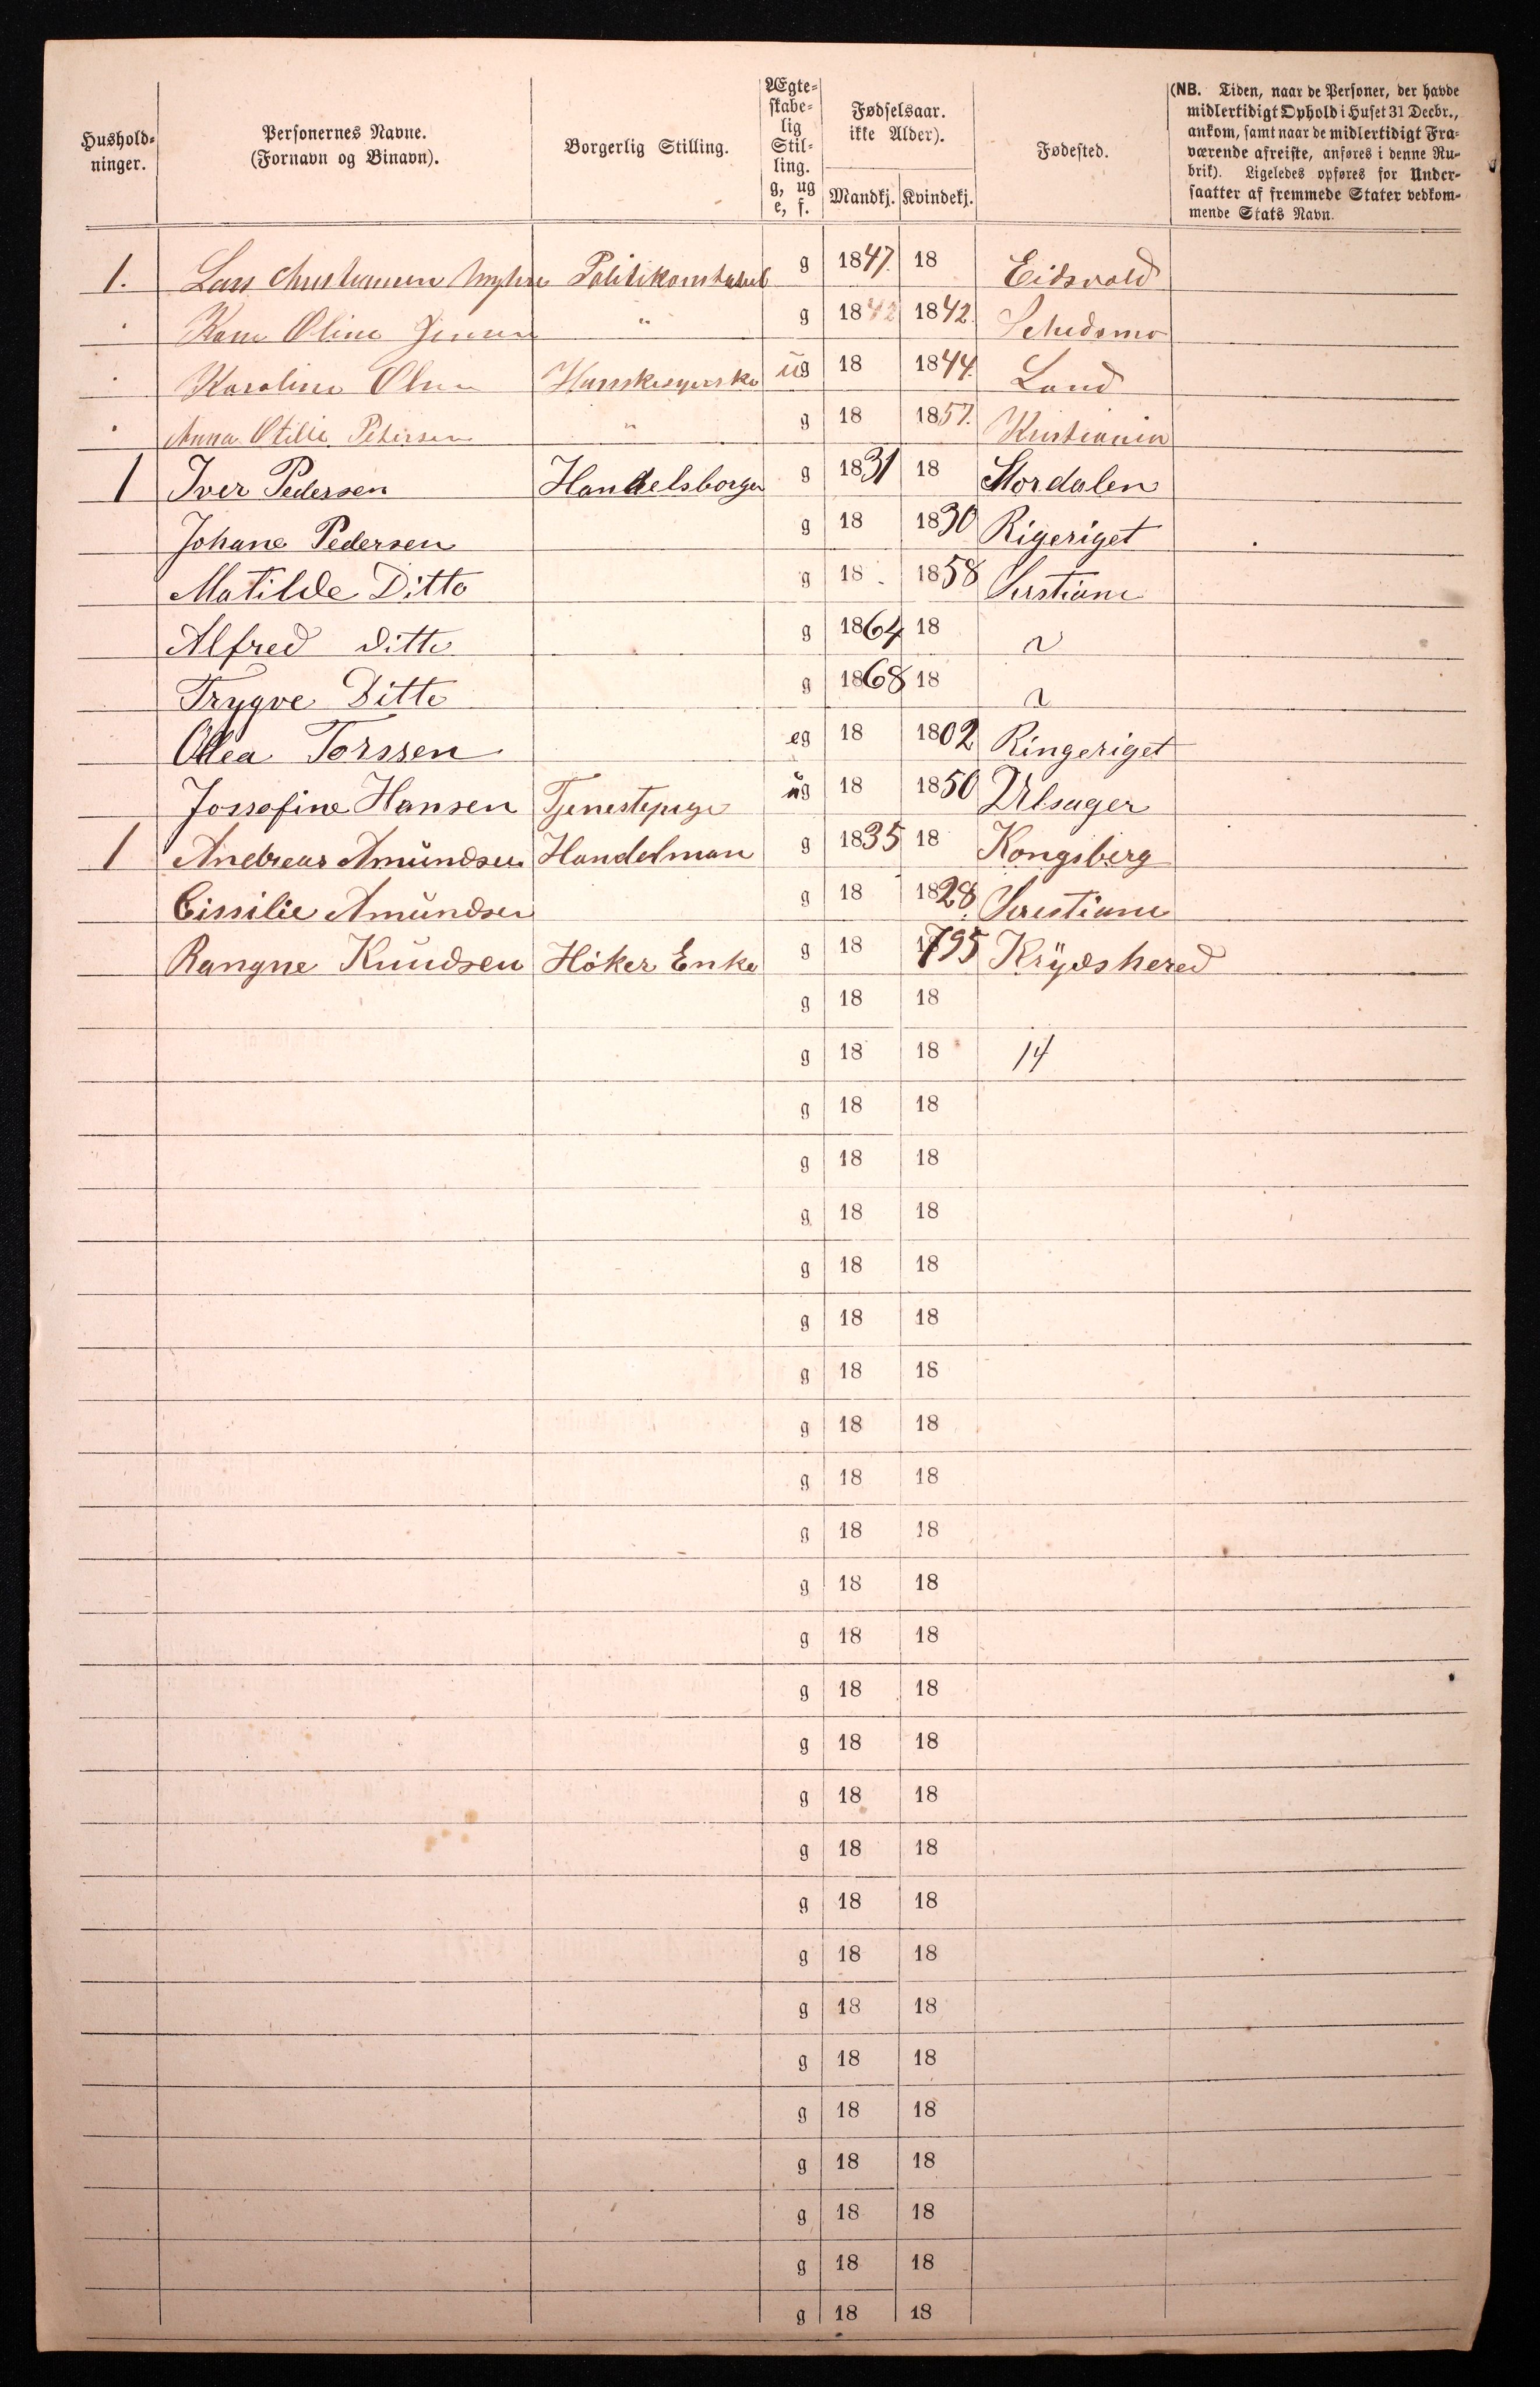 Hushold-ninger. Personernes Navne. (Fornavn og Binavn). Borgerlig Stilling. Ægte-skabe-lig Stil-ling. g, ug e, f. Fødselsaar. ikke Alder). Mandkj. Kvindekj. Fødested. (NB. Tiden, naar de Personer, der havde midlertidigt Ophold i Huset 31 Decbr., ankom, samt naar de midlertidigt Fra-værende afreiste, anføres i denne Ru-brik). Ligeledes opføres for Under-saatter af fremmede Stater vedkom-mende Stats Navn.
1. Lars Christiansen Myhre Politikonstabel g 1847. 18 Eidsvold
" Oline Jensen " g 1842 1842. Schedsmo
" Karoline Olsen ug 18 1844. Land
" Anna Otilie Petersen " g 18 1857. Kristiania
1 Iver Pedersen Handelsborger g 1831 18 Stordalen
Johane Pedersen g 18 1830 Rigeriget
Matilde Ditto g 18 1858
Alfred Ditto g 1864 18 "
Trygve Ditto g 1868 18 "
Olea Torssen eg 18 1802 Ringeriget
Jossefine Hansen Tjenestepige ug 18 1850 Ulsager
1 Andreas Amundsen Handelman g 1835 18 Kongsberg
Cissilie Amundsen g 18 1828
Rangne Knudsen Höker Enke g 18 1795 Krydshered
g 18 18
g 18 18 14
g 18 18
g 18 18
g 18 18
g 18 18
g 18 18
g 18 18
g 18 18
g 18 18
g 18 18
g 18 18
g 18 18
g 18 18
g 18 18
g 18 18
g 18 18
g 18 18
g 18 18
g 18 18
g 18 18
g 18 18
g 18 18
g 18 18
g 18 18
g 18 18